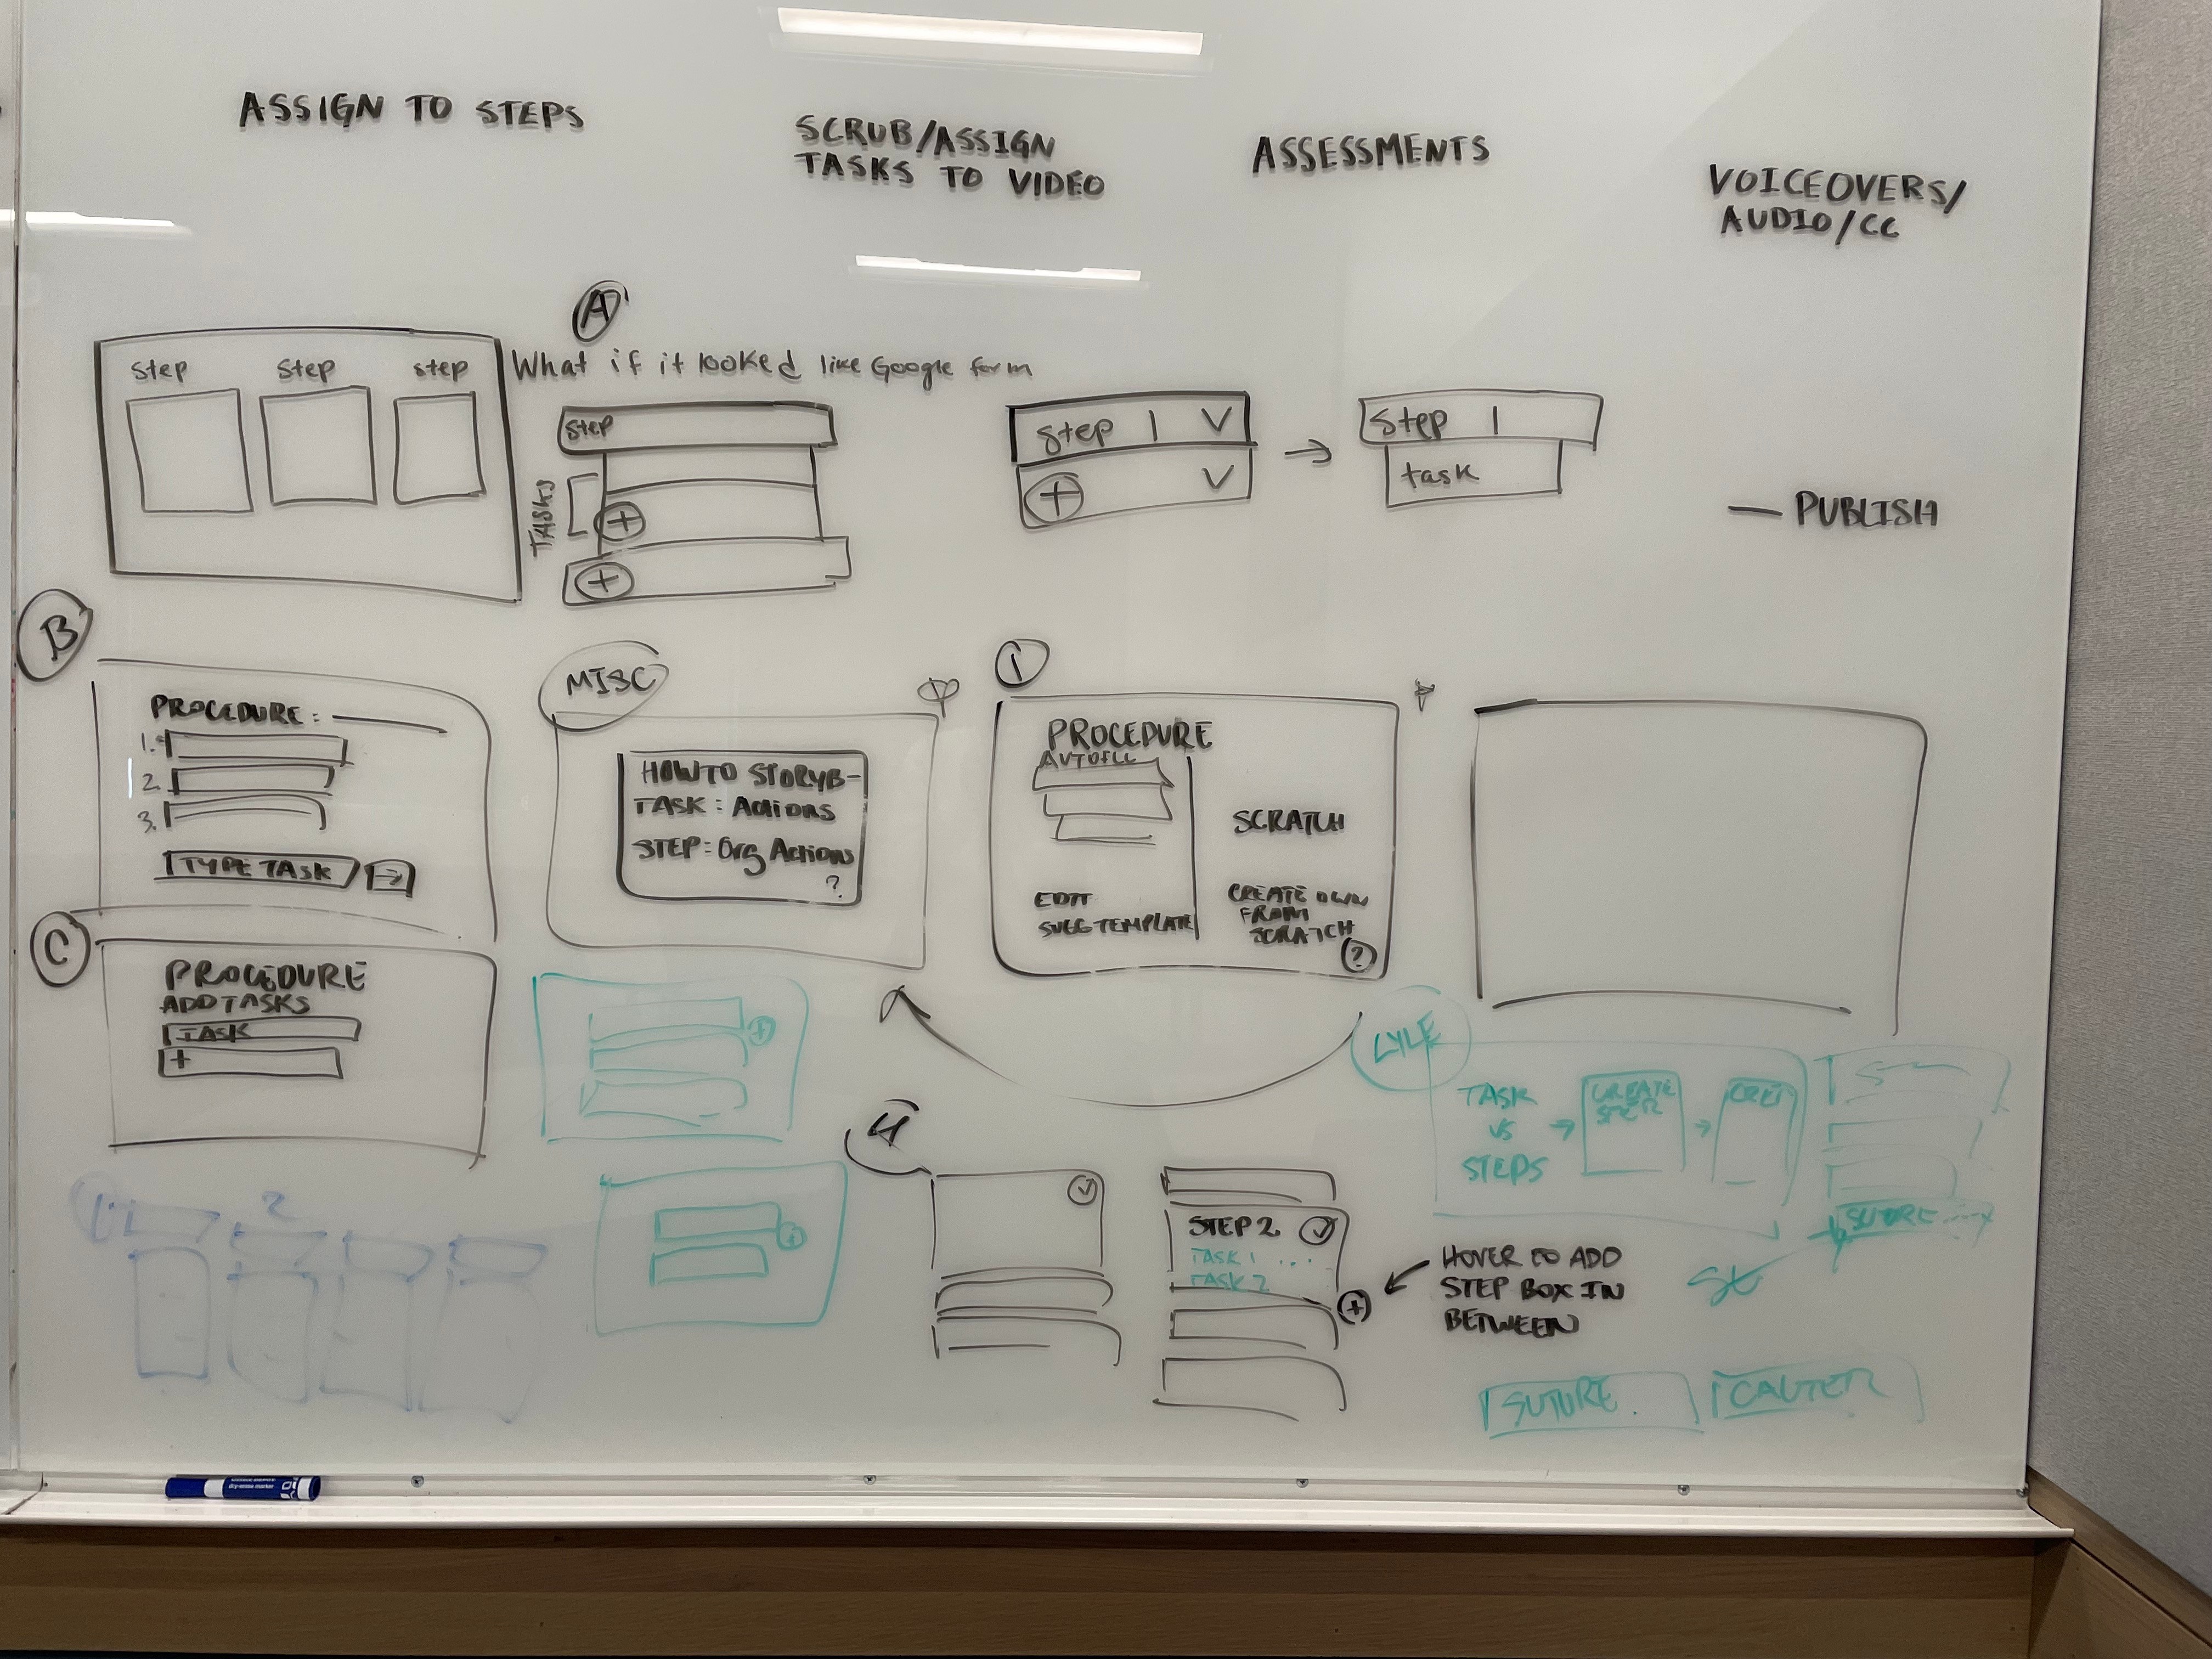 ASSIGN TO STEPS
SCRUB/ASSIGN
TASKS TO VIDEO
ASSESSMENTS
VOICEOVERS/
AUDIO/CC
A
What if it looked like Google form
step
step
step
step
TASKS
+
+
step 1 V
+ V
→
step 1
task
— PUBLISH
B
PROCEDURE:
1.
2.
3.
TYPE TASK →
MISC
HOW TO STORYB-
TASK: Actions
STEP: Org Actions
?
1
PROCEDURE
AUTOFILL
EDIT
SUGG TEMPLATE
SCRATCH
CREATE OWN
FROM
SCRATCH
?
C
PROCEDURE
ADD TASKS
TASK
+
+
LYLE
TASK
VS
STEPS
→
CREATE
→
SUTURE
2
STEP 2
TASK 1 ...
TASK 2
+
HOVER TO ADD
STEP BOX IN
BETWEEN
SUTURE
CAUTER